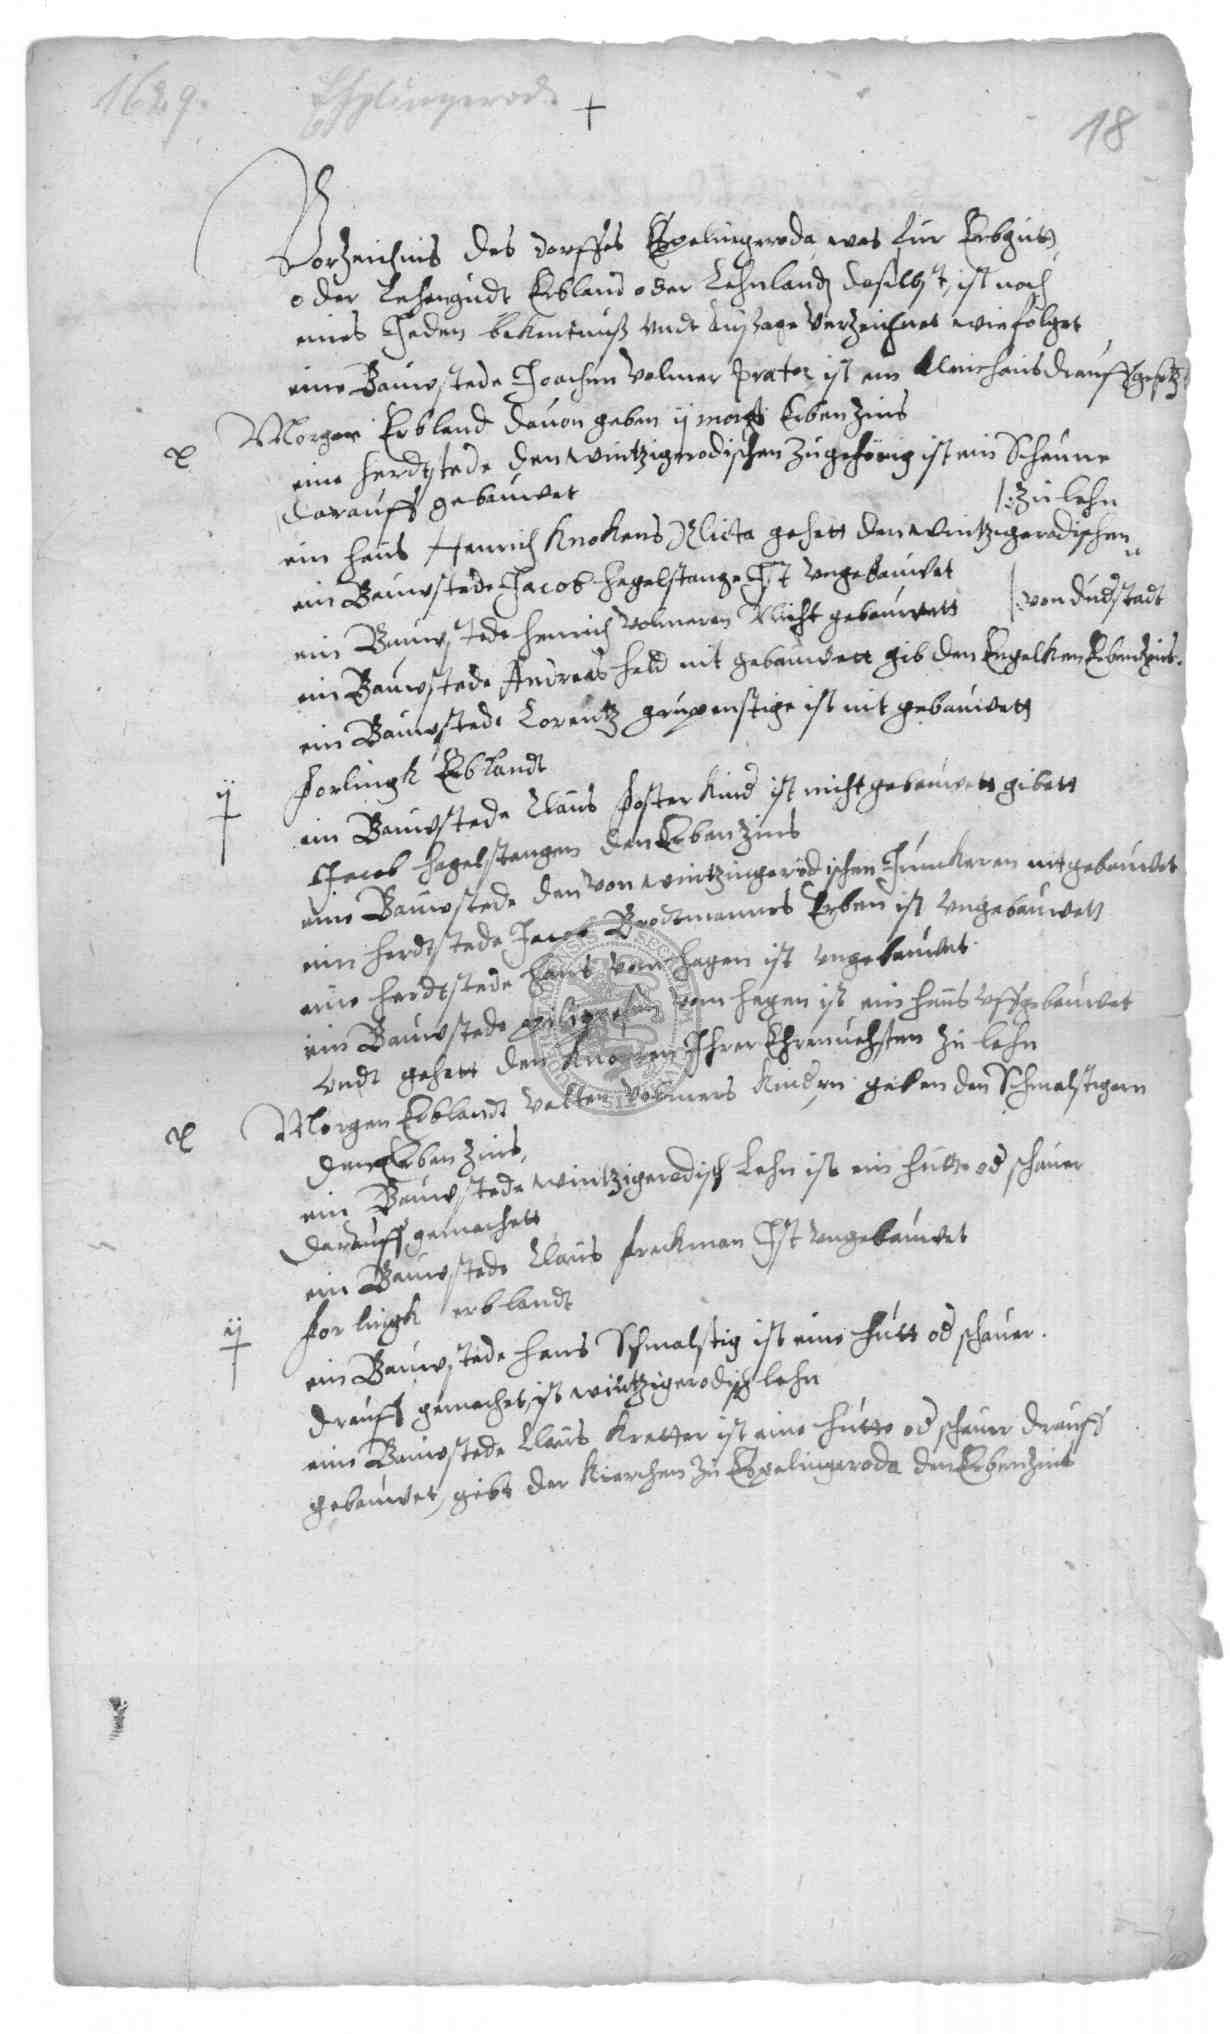 1629. Esplingerode
+
18
Vorzeichnis des dorffes Espelingeroda was für Erbgut
oder Lehengudt Erbland oder Lehnlandt daselbst, ist nach
eines Jeden bekentnuß vndt Aussage verzeichnet wie folget
eine Bauwstede Joachim Volmer ist ein klein haus drauff gesetzt
x Morgen Erbland dauon geben ij Erben Zins
eine herdtstede den wintzigerodischen zugehörig ist ein Scheune
darauff gebauwet
ein haus Henrich Knokens Relicta gehett den wintzigerodischen zu lehn
ein Bauwstede Jacob hagelstange Ist vngebauwet
ein Bauwstede henrich Volmeren Nicht gebauwett
ein Bauwstede Andreas held nit gebauwett gib den Engelken von dudstadt Erbenzins.
ein Bauwstede Lorentz ist nit gebauwett
ij forlingk Erblandt
ein Bauwstede Claus foster Kind ist nicht gebauwett gibett
Jacob hagelstangen den Erben Zins
eine Bauwstede den von wintzingerödischen Junckeren nit gebauwet
ein herdtstede Jacob Brodtmannes Erben ist vngebauwett
eine herdtstede hans vom hagen ist vngebauwet
ein Bauwstede vom hagen ist ein haus vffgebauwet
vndt gehett den Knorren Ihrer Ehrnuehsten zu lehn
x Morgen Erblandt Valten Volmers Kindern geben den Schmalstigern
den Erben Zins,
ein Bauwstede wintzigerodisch Lehn ist ein hutte od schauer
darauff gemachett
ein Bauwstede Claus freckman Ist vngebauwet
ij forlingk erblandt
ein Bauwstede hans Schmalstig ist eine hutt od schauer.
drauff gemachet, ist wintzigerodisch lehn
eine Bauwstede Claus Kretter ist eine hutte od schauer drauff
gebauwet, gibt der Kierchen zu Espelingeroda den Erbenzins